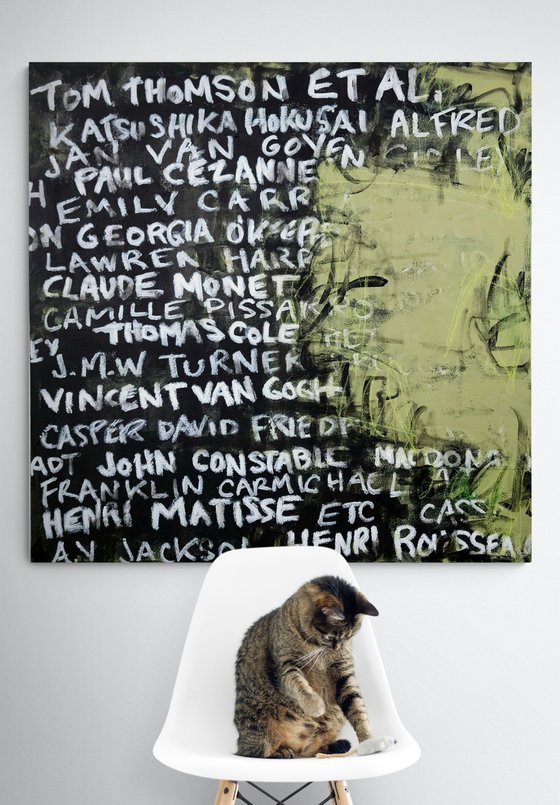 TOM THOMSON ET AL.
KATSUSHIKA HOKUSAI ALFRED
JAN VAN GOYEN
PAUL CÉZANNE
EMILY CARR
GEORGIA O'KEEFE
LAWREN HARR
CLAUDE MONET
CAMILLE PISSARRO
THOMAS COLE
EY
J.M.W TURNER
VINCENT VAN GOGH
CASPER DAVID FRIED
ADT JOHN CONSTABLE MACDONA
FRANKLIN CARMICHAEL
HENRI MATISSE ETC CASS
A.Y JACKSON HENRI ROUSSEA